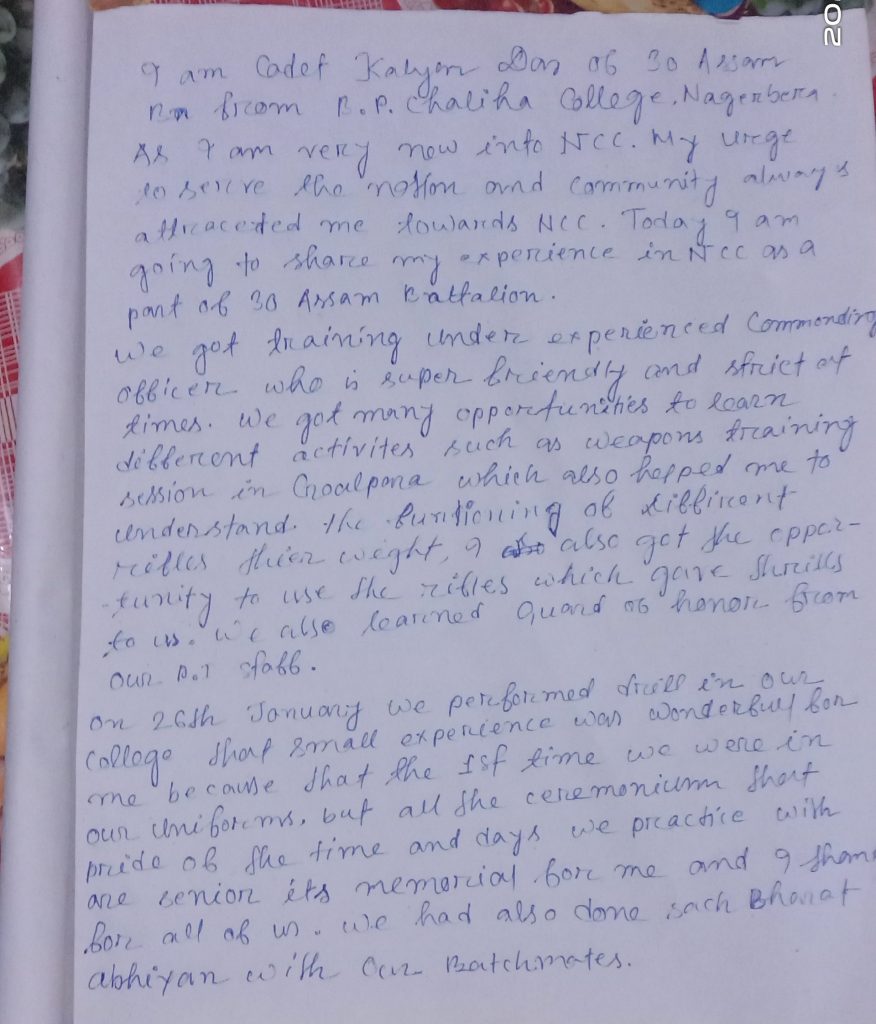 20
I am Cadet Kalyan Das of 30 Assam
Bn from B.P. Chaliha College, Nagarbera.
As I am very new into NCC. My urge
to serve the nation and community always
attraceted me towards NCC. Today I am
going to share my experience in NCC as a
part of 30 Assam Battalion.
We got training under experienced Commonding
officer who is super friendly and strict at
times. We got many opportunities to learn
different activites such as weapons training
session in Goalpara which also helped me to
understand the funtioning of diffirent
rifles thier weght, I also got the oppor-
tunity to use the rifles which gave thrills
to us. We also learned guard of honor from
our P.I staff.
On 26th January we performed drill in our
College that small experience was wonderfull for
me because that the 1st time we were in
our uniforms, but all the ceremonium that
pride of the time and days we practice with
are senior its memorial for me and I
for all of us. We had also done sach Bharat
abhiyan with our Batchmates.